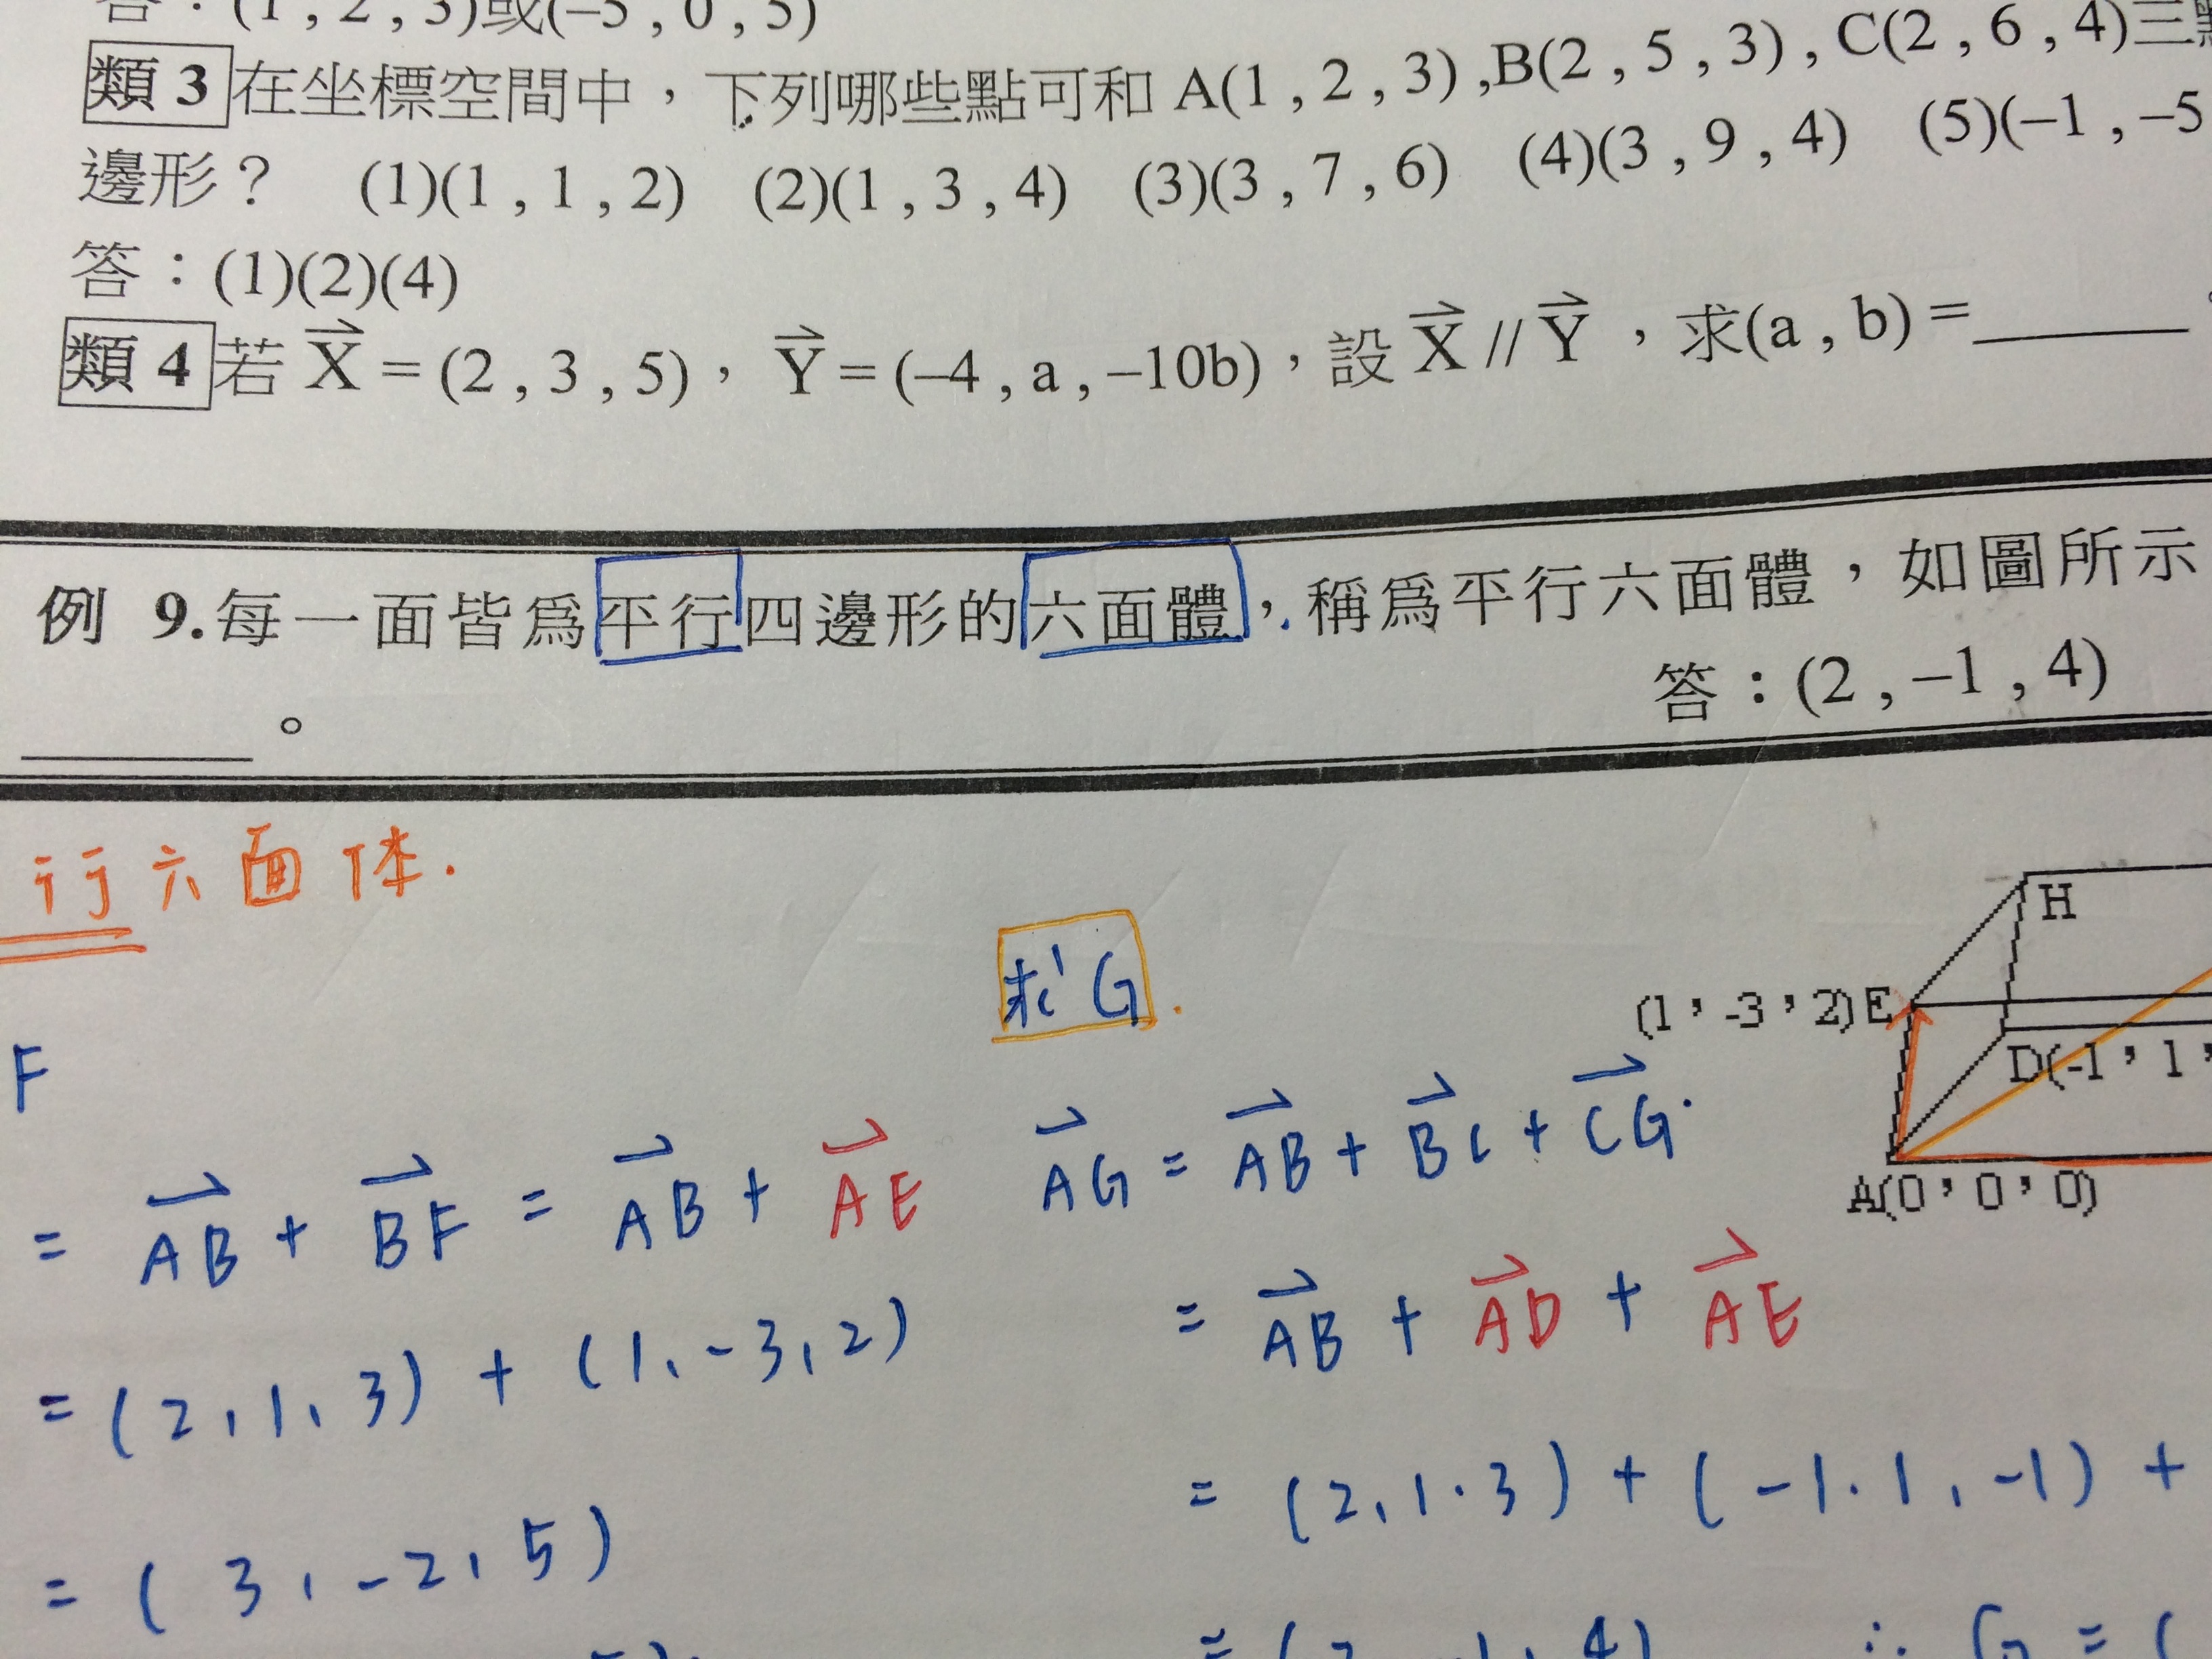 答：(1 , 2 , 3)或(–5 , 0 , 5)
類 3 在坐標空間中，下列哪些點可和 A(1 , 2 , 3) ,B(2 , 5 , 3) , C(2 , 6 , 4)三點
邊形？ (1)(1 , 1 , 2) (2)(1 , 3 , 4) (3)(3 , 7 , 6) (4)(3 , 9 , 4) (5)(–1 , –5
答：(1)(2)(4)
類 4 若 X⃗ = (2 , 3 , 5)， Y⃗ = (–4 , a , –10b)，設 X⃗ // Y⃗ ，求(a , b) = ______
例 9.每一面皆為平行四邊形的六面體，稱為平行六面體，如圖所示
______。
答：(2 , –1 , 4)
行六面体.
求G.
H
(1，-3，2)E
D(-1，1，
A(0，0，0)
F
= AB⃗ + BF⃗ = AB⃗ + AE⃗
= (2, 1, 3) + (1, -3, 2)
= (3, -2, 5)
AG⃗ = AB⃗ + BC⃗ + CG⃗.
= AB⃗ + AD⃗ + AE⃗
= (2, 1. 3) + (-1. 1, -1) +
= (2, -1, 4) ∴ G = (